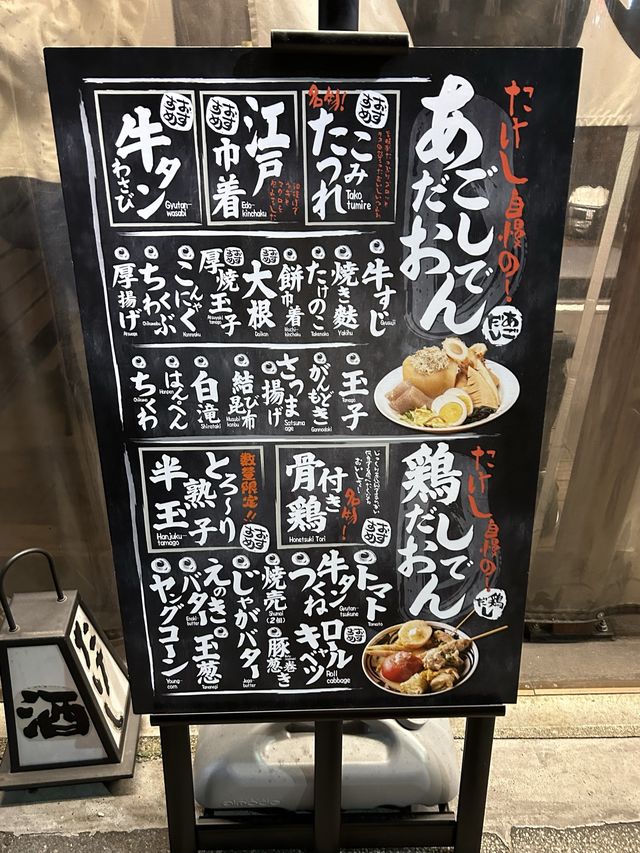 たけし自慢の！
あごだしおでん
あごだし
名物！
おすすめ
たこつみれ
Tako
tumire
おすすめ
江戸巾着
Edo-
kinchaku
おすすめ
牛タンわさび
Gyutan-
wasabi
牛すじ
Gyusuji
焼き麩
Yakihu
たけのこ
Takenoko
餅巾着
Mochi-
kinchaku
おすすめ
大根
Daikon
おすすめ
厚焼玉子
Atsuyaki
tamago
こんにゃく
Konnyaku
ちくわぶ
Chikuwabu
厚揚げ
Atsuage
玉子
Tamago
がんもどき
Ganmodoki
さつま揚げ
Satsuma
age
結び昆布
Musubi
kombu
白滝
Shirataki
はんぺん
Hanpen
ちくわ
Chikuwa
たけし自慢の！
鶏だしおでん
鶏だし
名物！
骨付き鶏
Honetsuki Tori
おすすめ
数量限定!!
とろ～り半熟玉子
Hanjuku-
tamago
おすすめ
トマト
Tomato
牛タンつくね
Gyutan-
tsukune
焼売
Shumai
(2個)
じゃがバター
Jaga-
butter
えのきバター
Enoki
butter
ヤングコーン
Young-
corn
おすすめ
ロールキャベツ
Roll
cabbage
豚葱巻き
玉葱
Tamanegi
たけし
酒